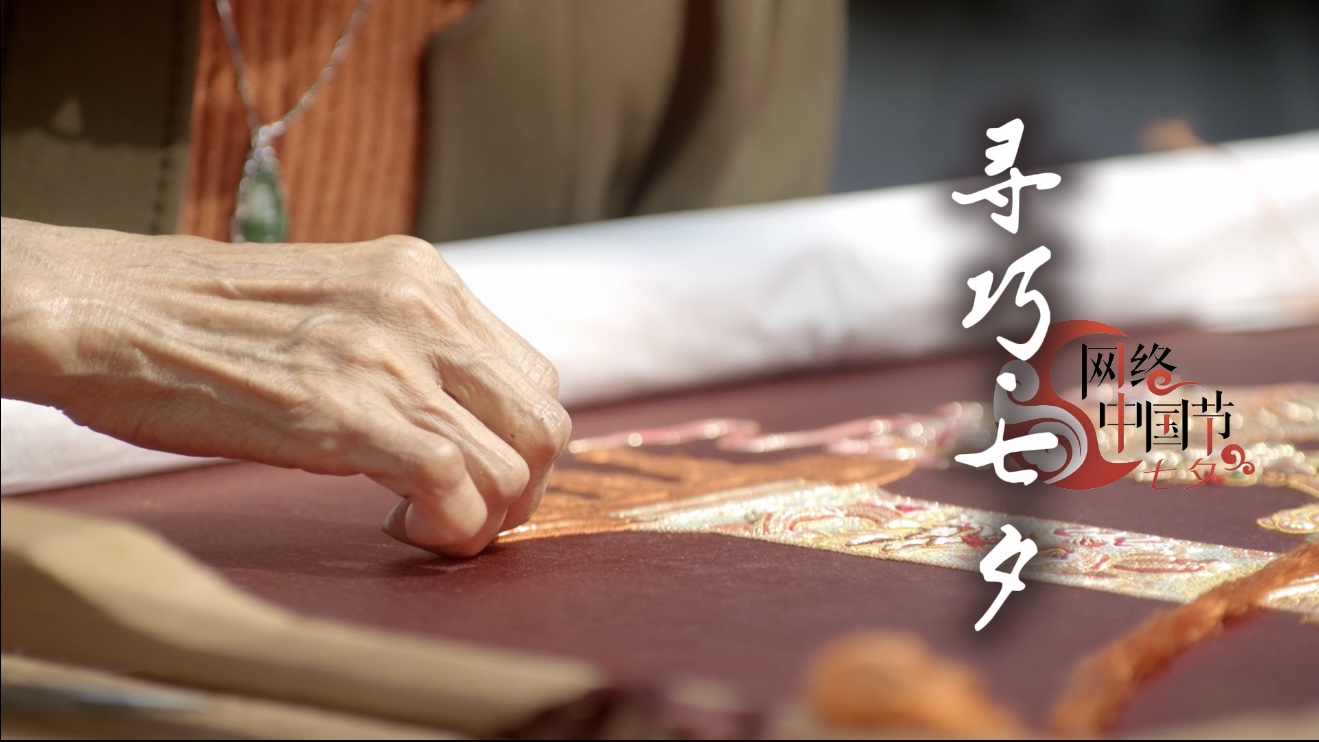 寻巧·七夕
网络
中国节
七夕